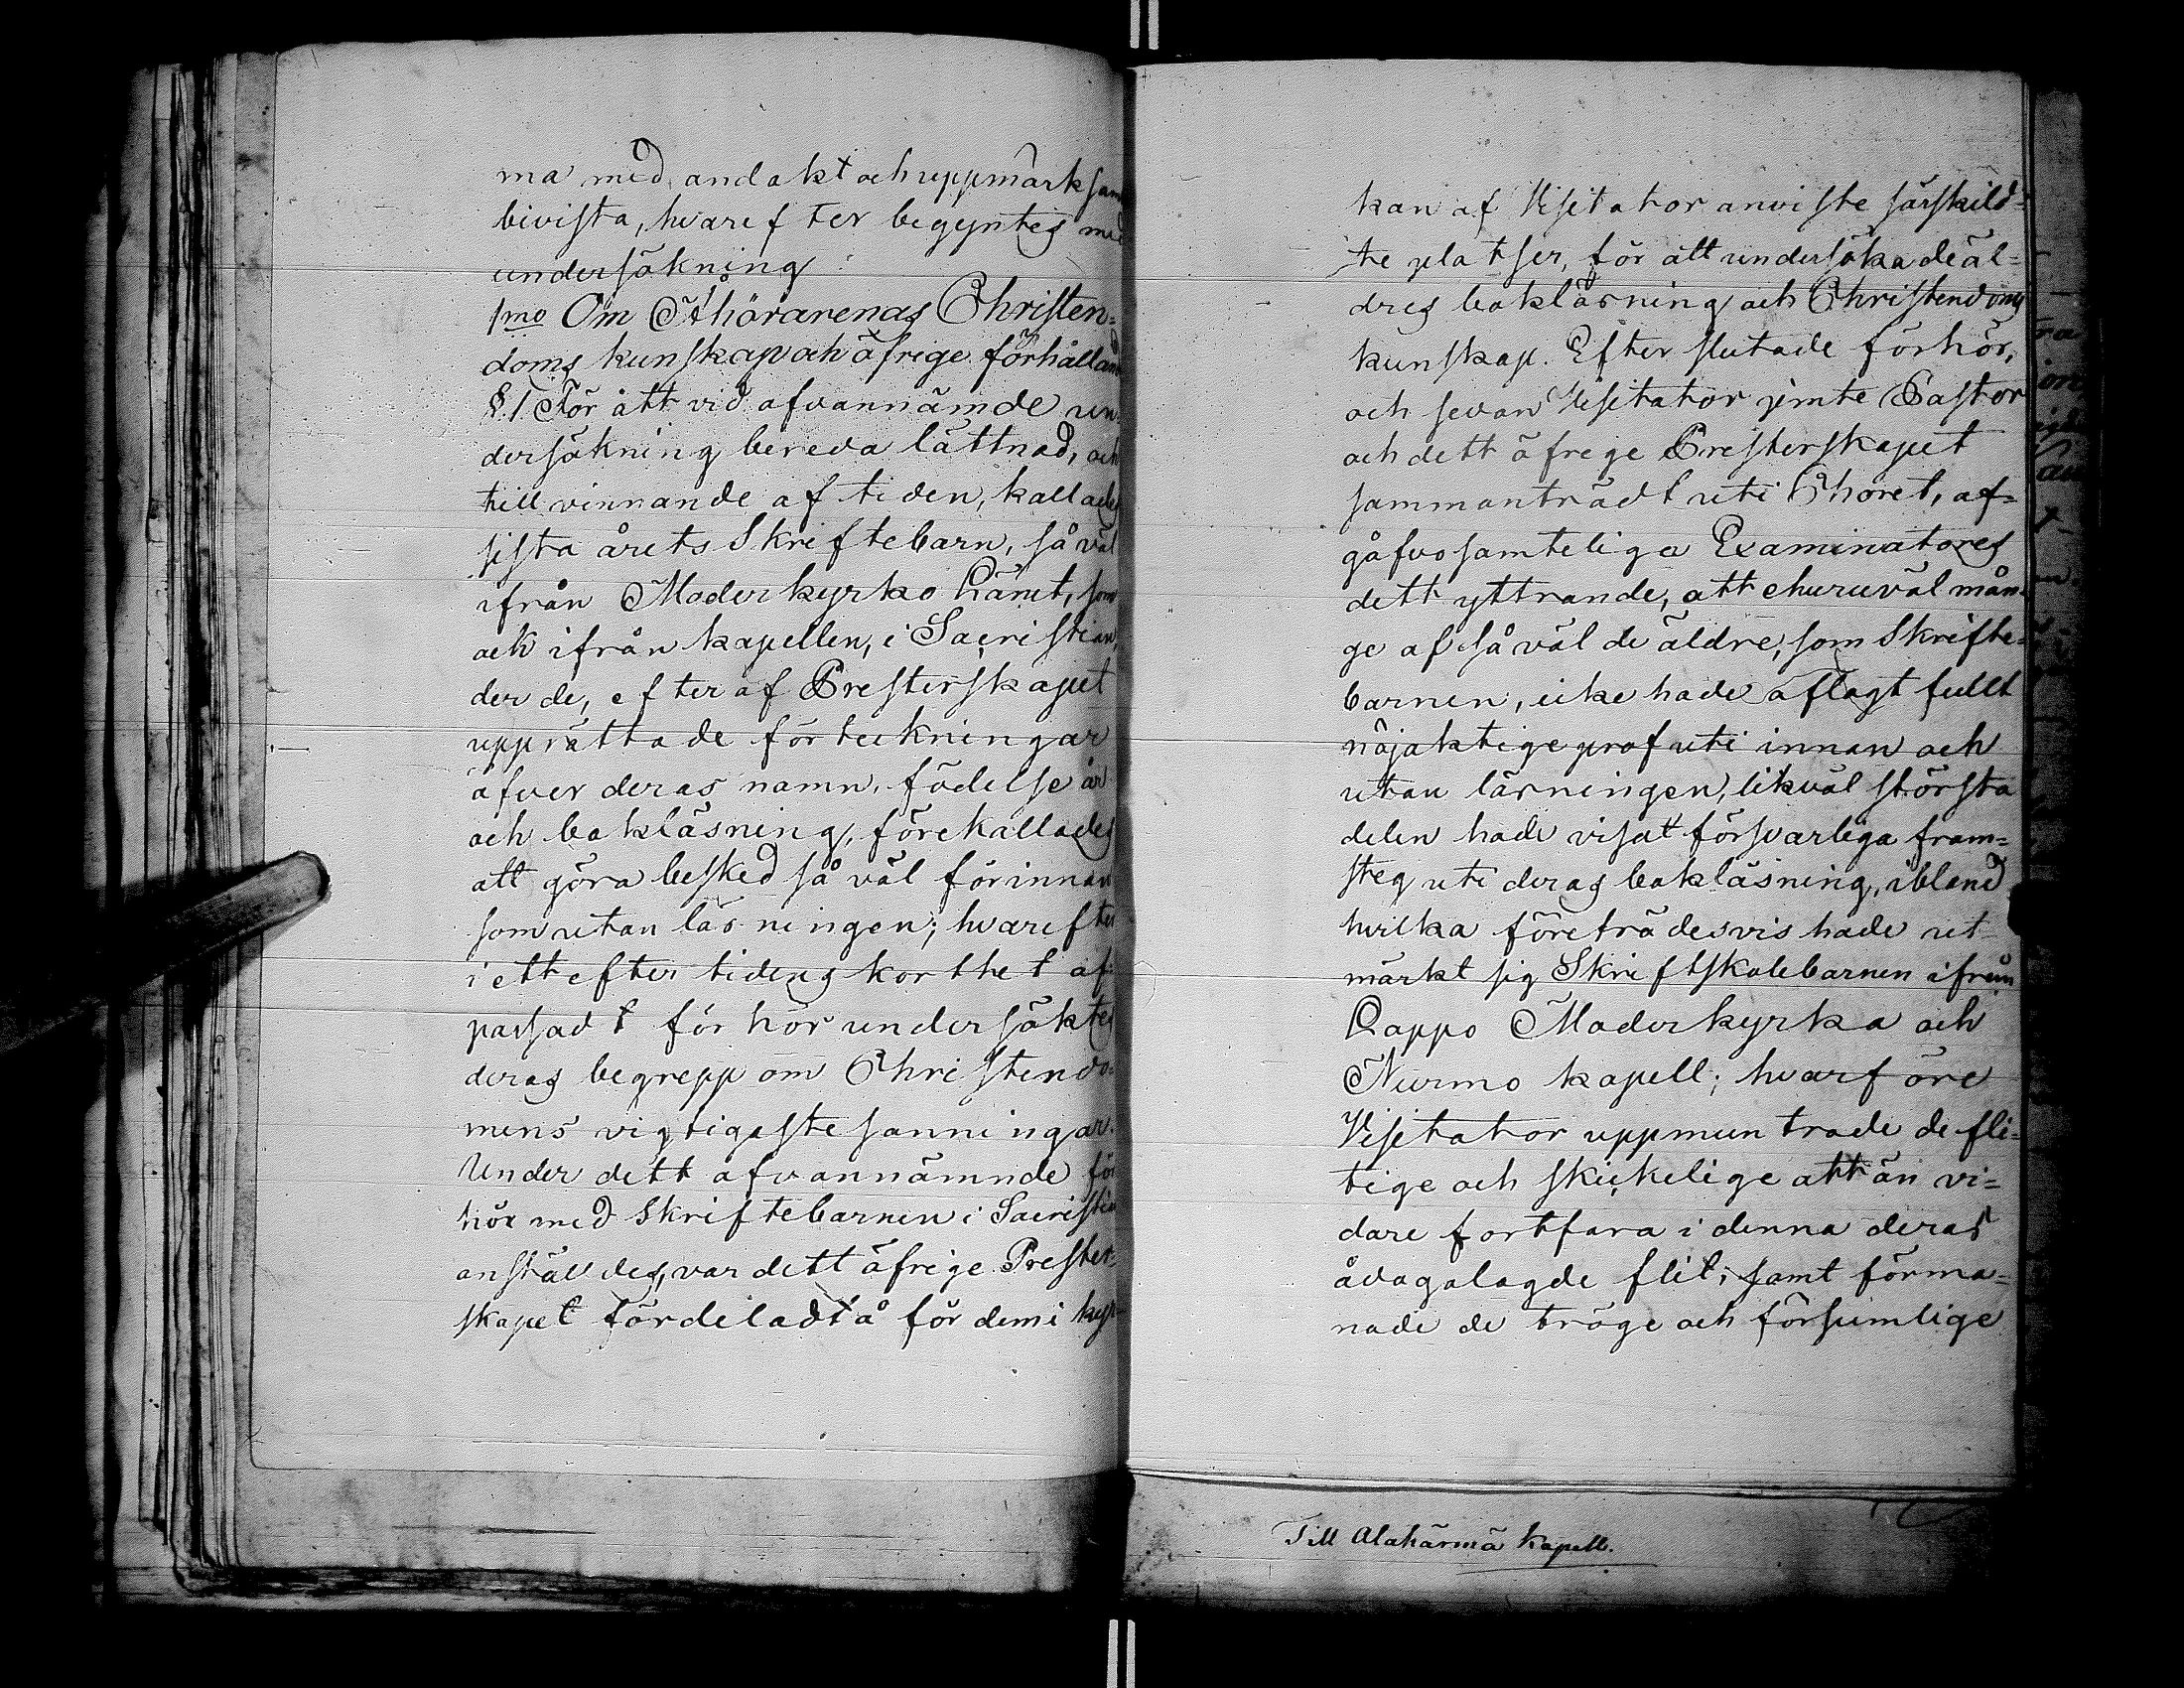 ma med andakt och uppmärksam
bivista, hvarefter begyntes med
undersökning
1mo Om Åhörarenas Christen=
doms kunskap och öfrige förhålland
§. 1 För att vid ofvannämde un=
dersökning bereda lättnad, och
till vinnande af tiden, kallades
sista årets Skriftebarn, så väl
ifrån Moderkyrko Länet, som
ock ifrån kapellen, i Sacristian,
der de, efter af Presterskapet
upprättade förteckningar
öfver deras namn, födelse år
och bokläsning, förekallades
att göra besked så väl för innan
som utan läsningen; hvarefter
i ett efter tidens korthet af
passadt förhör undersöktes
deras begrepp om Christendo=
mens vigtigaste sanningar.
Under dett ofvannämnde för
hör med Skriftebarnen i Sacristian
anställdes, var dett öfrige Prester=
skapet fördeladt å för dem i kyr-
kan af Visitator anviste särskild=
te platser, för att undersöka de äl=
dres bokläsning och Christendoms
kunskap. Efter slutade förhör,
och sedan Visitator jemte Pastor
och dett öfrege Presterskapet
sammanträdt uti Choret, af=
gåfvo samtelige Examinatores
dett yttrande, att ehuruväl mån=
ge af så väl de äldre, som Skrifte=
barnen, icke hade aflagt fullt
nöjaktige prof uti innan och
utan läsningen, likväl största
delen hade visat försvarliga fram=
steg uti deras bokläsning, ibland
hvilka företrädesvis hade ut
märkt sig Skriftskolebarnen ifrån
Lappo Moderkyrka och
Nurmo kapell; hvarföre
Visitator uppmuntrade de fli=
tige och skickelige att än vi=
dare fortfara i denna deras
ådagalagde flit, samt förma=
nade de tröge och försumlige
Till Alakärmä Kapell.